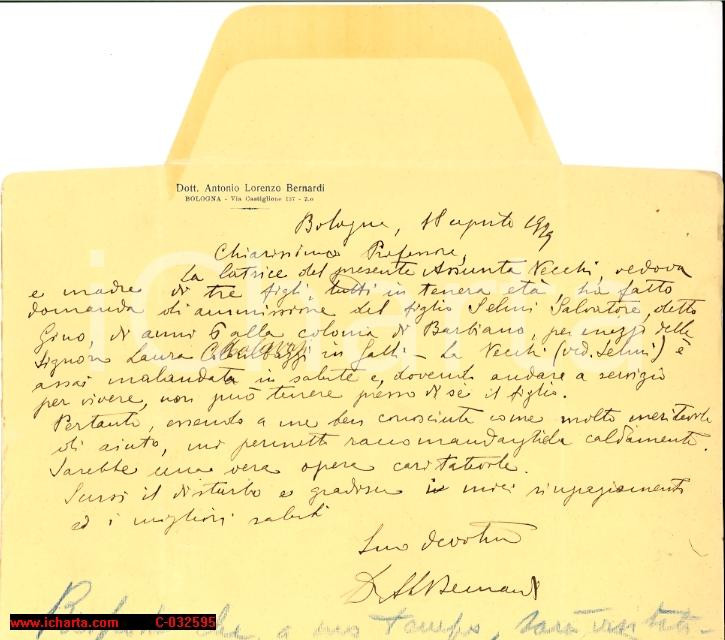 Dott. Antonio Lorenzo Bernardi
BOLOGNA - Via Castiglione 137 - 2.o
Bologna, 18 agosto 1929
Chiarissimo Professore,
La latrice del presente Assunta Vecchi, vedova
e madre di tre figli, tutti in tenera età, ha fatto
domanda di ammissione del figlio Selmi Salvatore, detto
Gino, di anni 6 alla colonia di Barbiano, per mezzo della
Signora Laura in Galli - La Vecchi (ved. Selmi) è
assai malandata in salute e, dovendo andare a servizio
per vivere, non può tenere presso di sé il figlio.
Pertanto, essendo a me ben conosciuta come molto meritevole
di aiuto, mi permetto raccomandargliela caldamente.
Sarebbe una vera opera caritatevole.
Scusi il disturbo e gradisca i miei ringraziamenti
ed i migliori saluti
Suo devotmo
Dr ALBernardi
che, a suo tempo, sarà
iCharta
www.icharta.com C-032595